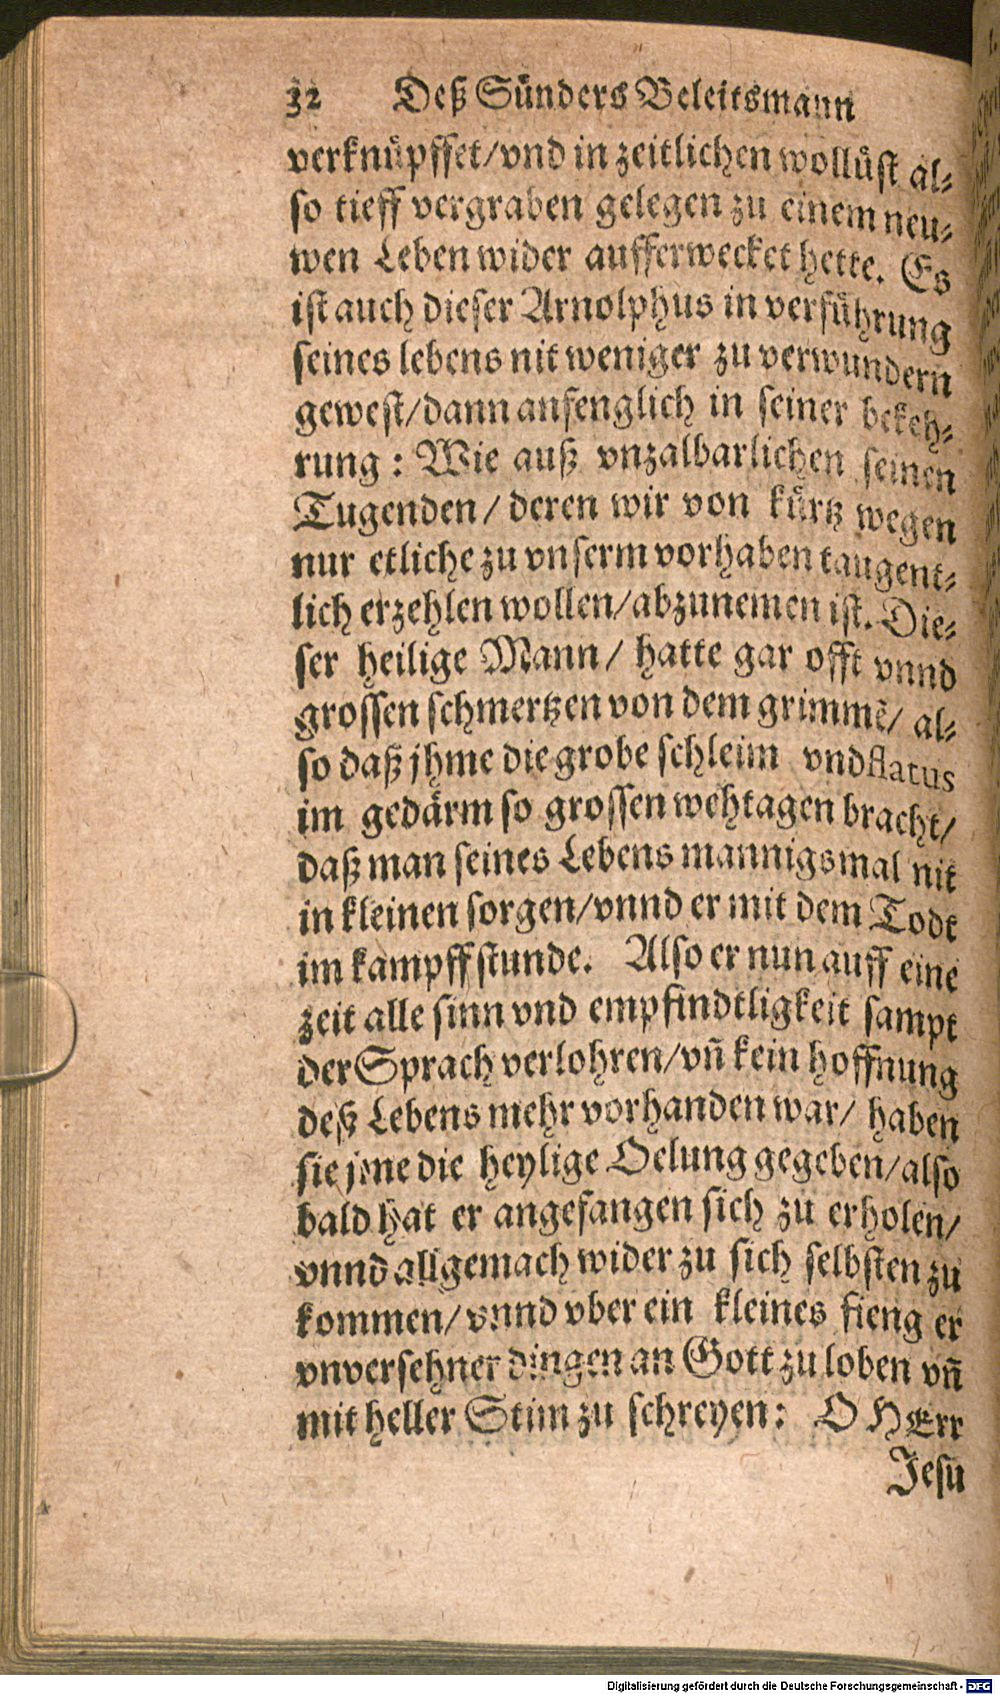 32 Deß Sünders Beleitsmann
verknüpffet/vnd in zeitlichen wollüst al-
so tieff vergraben gelegen zu einem neu-
wen Leben wider aufferwecket hette. Es
ist auch dieser Arnolphus in verführung
seines lebens nit weniger zu verwundern
gewest/dann anfenglich in seiner bekeh-
rung: Wie auß vnzalbarlichen seinen
Tugenden/ deren wir von kürtz wegen
nur etliche zu vnserm vorhaben taugent-
lich erzehlen wollen/abzunemen ist. Die-
ser heilige Mann/ hatte gar offt vnnd
grossen schmertzen von dem grimmē/ al-
so daß jhme die grobe schleim vnd flatus
im gedärm so grossen wehtagen bracht/
daß man seines Lebens mannigsmal nit
in kleinen sorgen/vnnd er mit dem Todt
im kampff stunde. Also er nun auff eine
zeit alle sinn vnd empfindtligkeit sampt
der Sprach verlohren/vñ kein hoffnung
deß Lebens mehr vorhanden war/ haben
sie jme die heylige Oelung gegeben/also
bald hat er angefangen sich zu erholen/
vnnd allgemach wider zu sich selbsten zu
kommen/ vnnd vber ein kleines fieng er
vnversehner dingen an Gott zu loben vñ
mit heller Stim zu schreyen: O HErr
Jesu
Digitalisierung gefördert durch die Deutsche Forschungsgemeinschaft - DFG